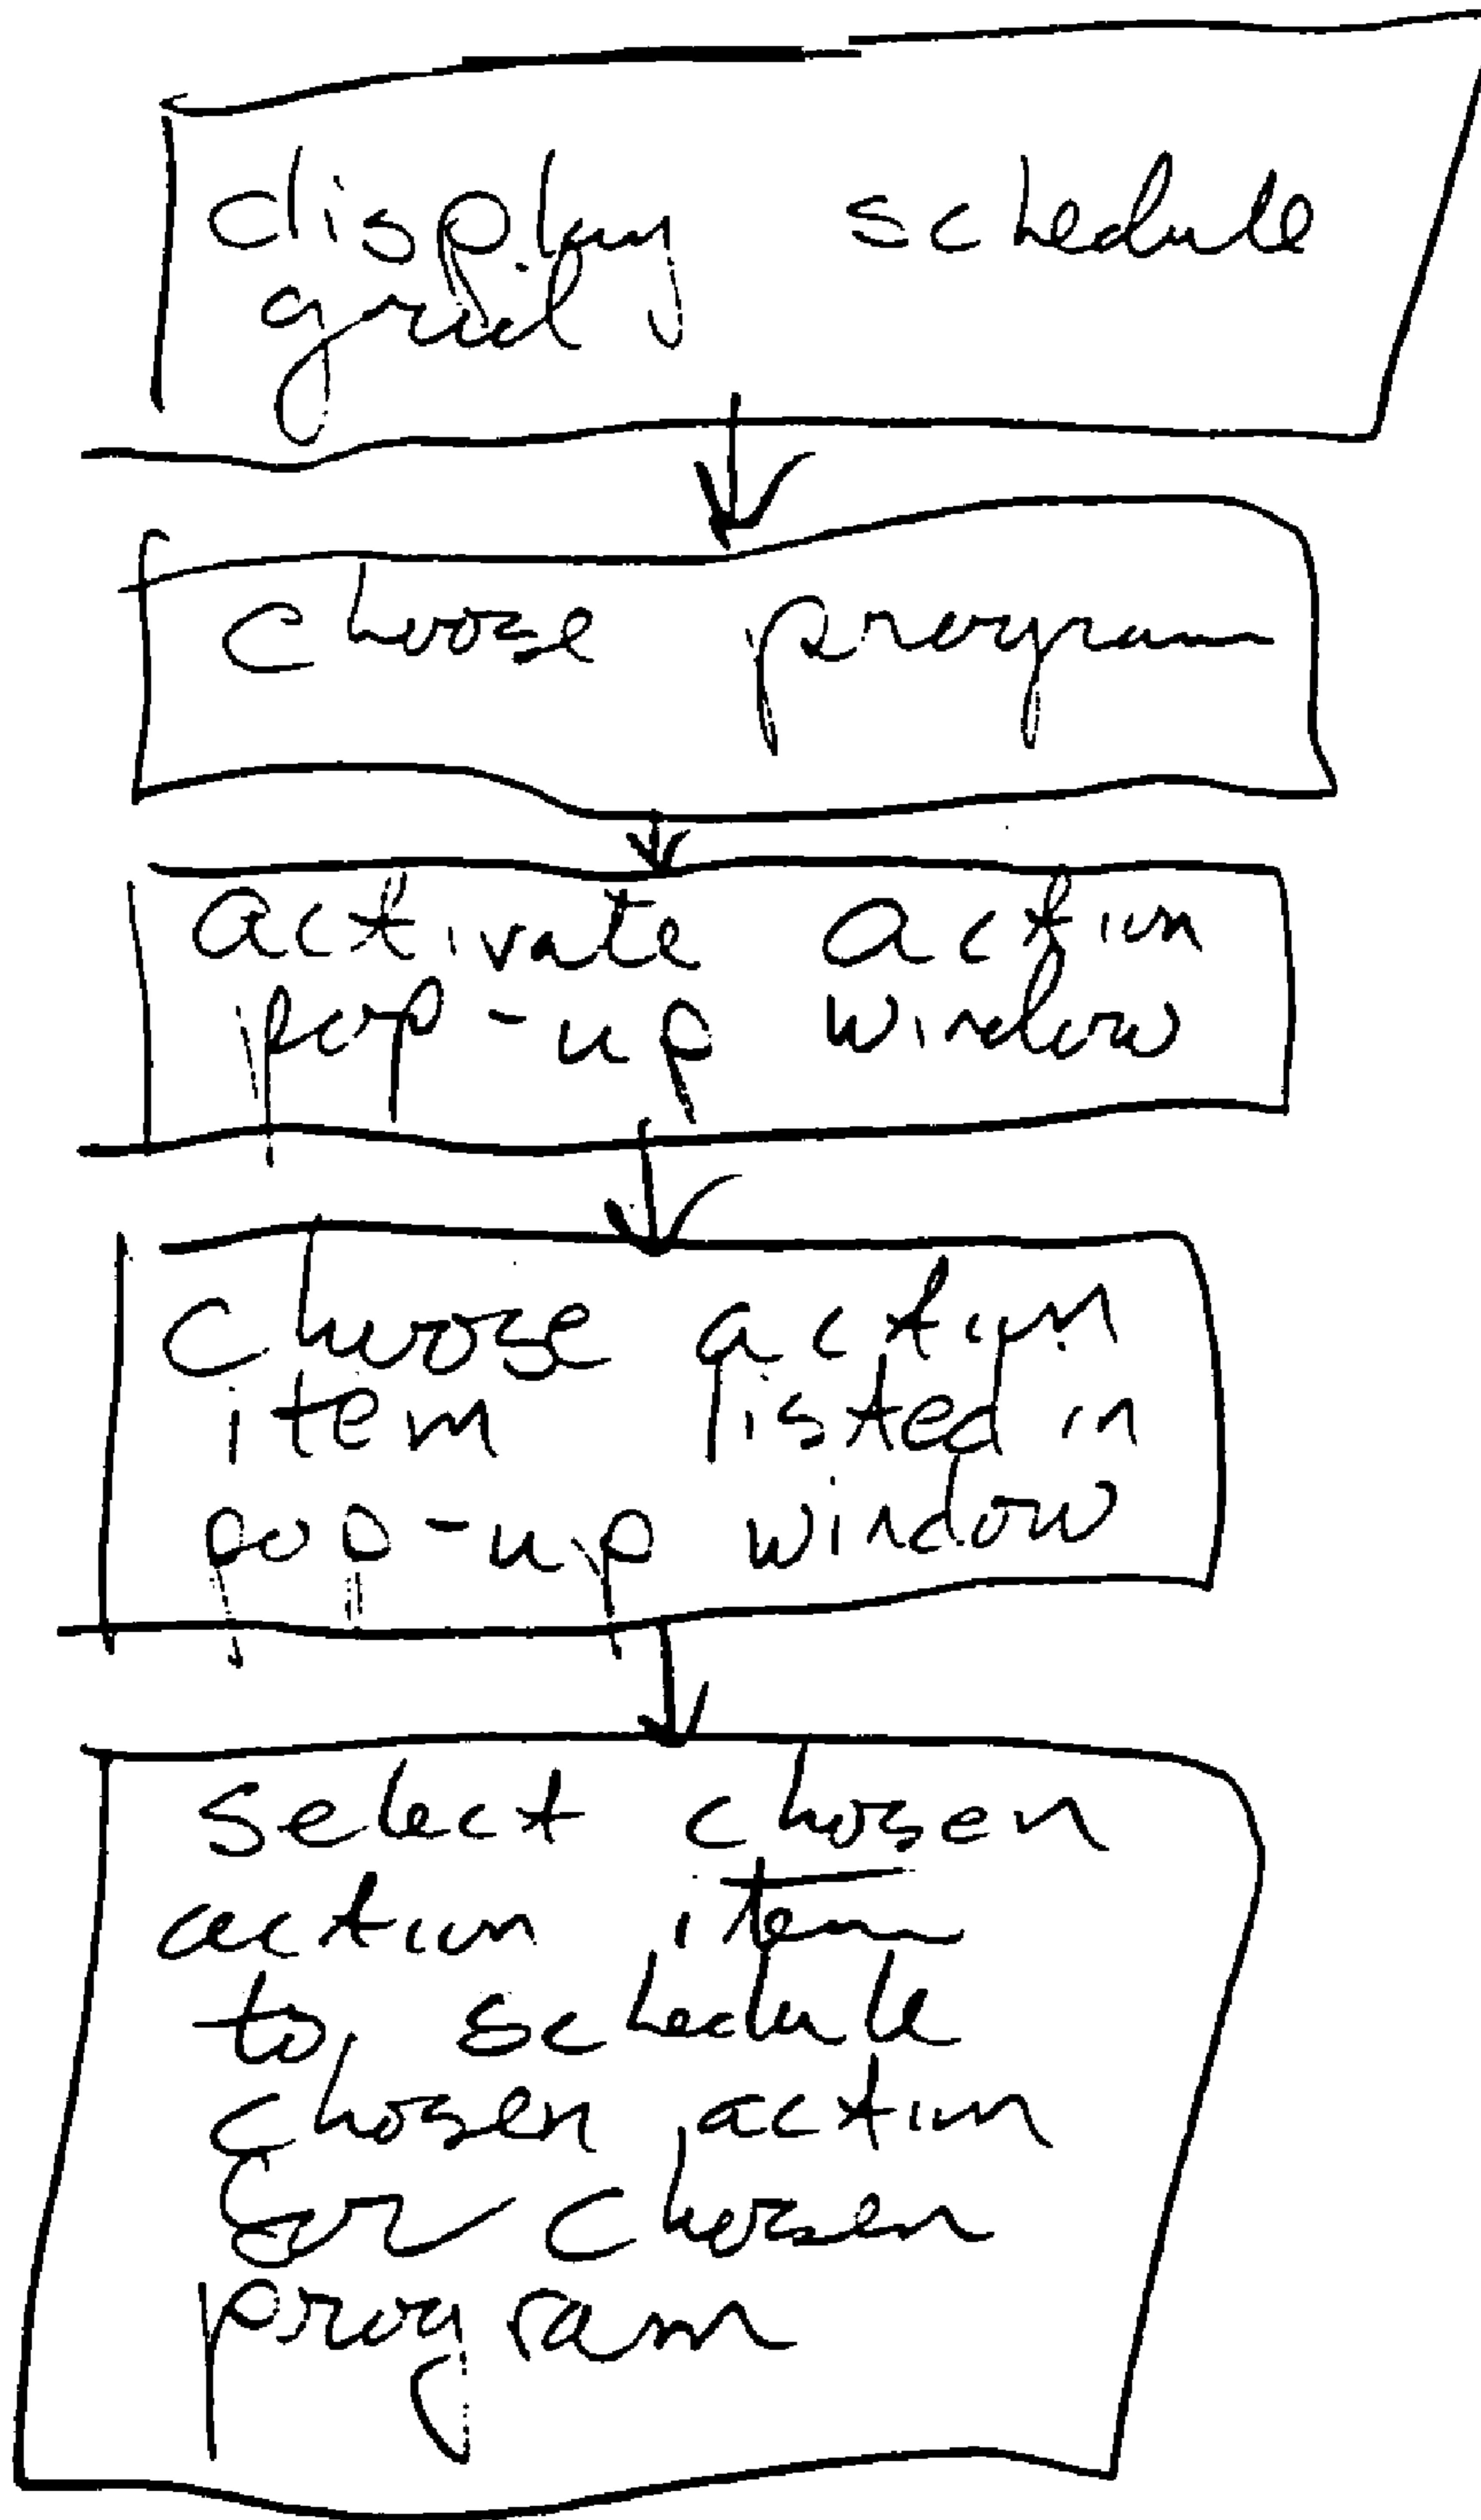 display schedule
grid
choose program
activate action
pop-up window
choose action
item listed in
pop-up window
select chosen
action item
to schedule
chosen action
for chosen
program